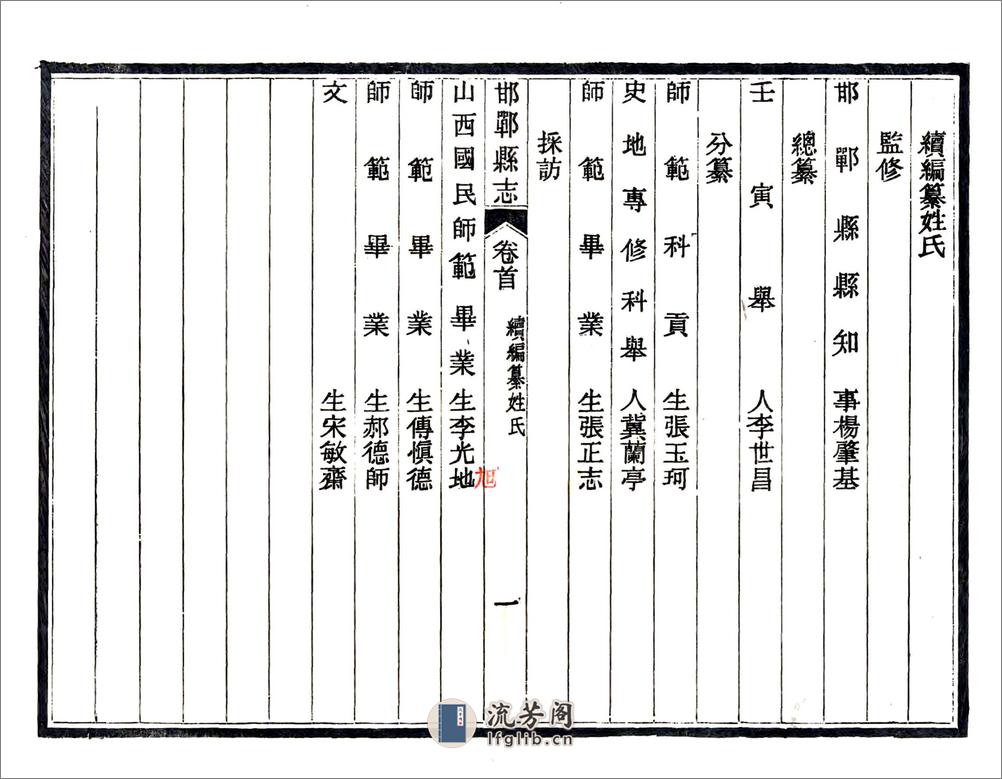 續編纂姓氏
監修
邯鄲縣縣知事楊肇基
總纂
壬寅舉人李世昌
分纂
師範科貢生張玉珂
史地專修科舉人冀蘭亭
師範畢業生張正志
採訪
邯鄲縣志 卷首 續編纂姓氏 一
山西國民師範畢業生李光地
旭
師範畢業生傅愼德
師範畢業生郝德師
文生宋敏齋
流芳阁
lfglib.cn